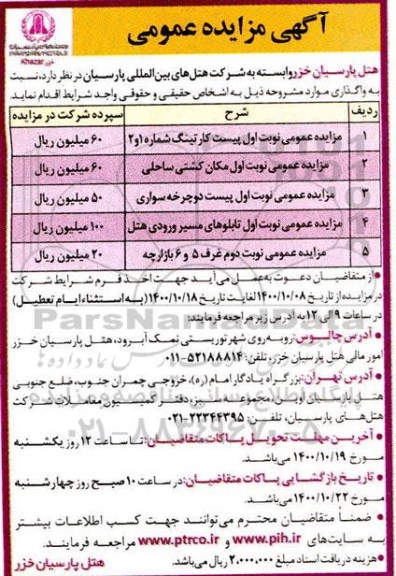 آگهی مزایده عمومی
Khazar
هتل پارسیان خزر وابسته به شرکت هتل های بین المللی پارسیان در نظر دارد، نسبت
به واگذاری موارد مشروحه ذیل به اشخاص حقیقی و حقوقی واجد شرایط اقدام نماید.
ردیف شرح سپرده شرکت در مزایده
۱ مزایده عمومی نوبت اول پیست کارتینگ شماره ۱و۲ ۶۰ میلیون ریال
۲ مزایده عمومی نوبت اول مکان کشتی ساحلی ۶۰ میلیون ریال
۳ مزایده عمومی نوبت اول پیست دوچرخه سواری ۵۰ میلیون ریال
۴ مزایده عمومی نوبت اول تابلوهای مسیر ورودی هتل ۱۰۰ میلیون ریال
۵ مزایده عمومی نوبت دوم غرف ۵ و ۶ بازارچه ۲۰ میلیون ریال
• از متقاضیان دعوت به عمل می آید جهت اخذ فرم شرایط شرکت
در مزایده از تاریخ ۱۴۰۰/۱۰/۰۸ لغایت تاریخ ۱۴۰۰/۱۰/۱۸ (به استثناء ایام تعطیل)
در ساعات ۹ الی ۱۲ به آدرس زیر مراجعه فرمایند:
• آدرس چالوس: روبه روی شهر توریستی نمک آبرود، هتل پارسیان خزر
امور مالی هتل پارسیان خزر، تلفن: ۵۲۱۸۸۸۱۴-۰۱۱
• آدرس تهران: بزرگراه یادگار امام (ره)، خروجی چمران جنوب، ضلع جنوبی
هتل پارسیان اوین، مجموعه سئیز، دفتر کمیسیون معاملات شرکت
هتل های پارسیان، تلفن: ۲۲۳۴۴۳۹۵-۰۲۱
• آخرین مهلت تحویل پاکات متقاضیان: تا ساعت ۱۲ روز یکشنبه
مورخ ۱۴۰۰/۱۰/۱۹ می باشد.
• تاریخ بازگشایی پاکات متقاضیان: در ساعت ۱۰ صبح روز چهارشنبه
مورخ ۱۴۰۰/۱۰/۲۲ می باشد.
• ضمناً متقاضیان محترم می توانند جهت کسب اطلاعات بیشتر
به سایت های www.pih.ir و www.ptrco.ir مراجعه فرمایند.
• هزینه دریافت اسناد مبلغ ۲.۰۰۰.۰۰۰ ریال می باشد.
هتل پارسیان خزر
ParsNamadData
۰۲۱-۸۸۳۴۹۶۷۰-۵